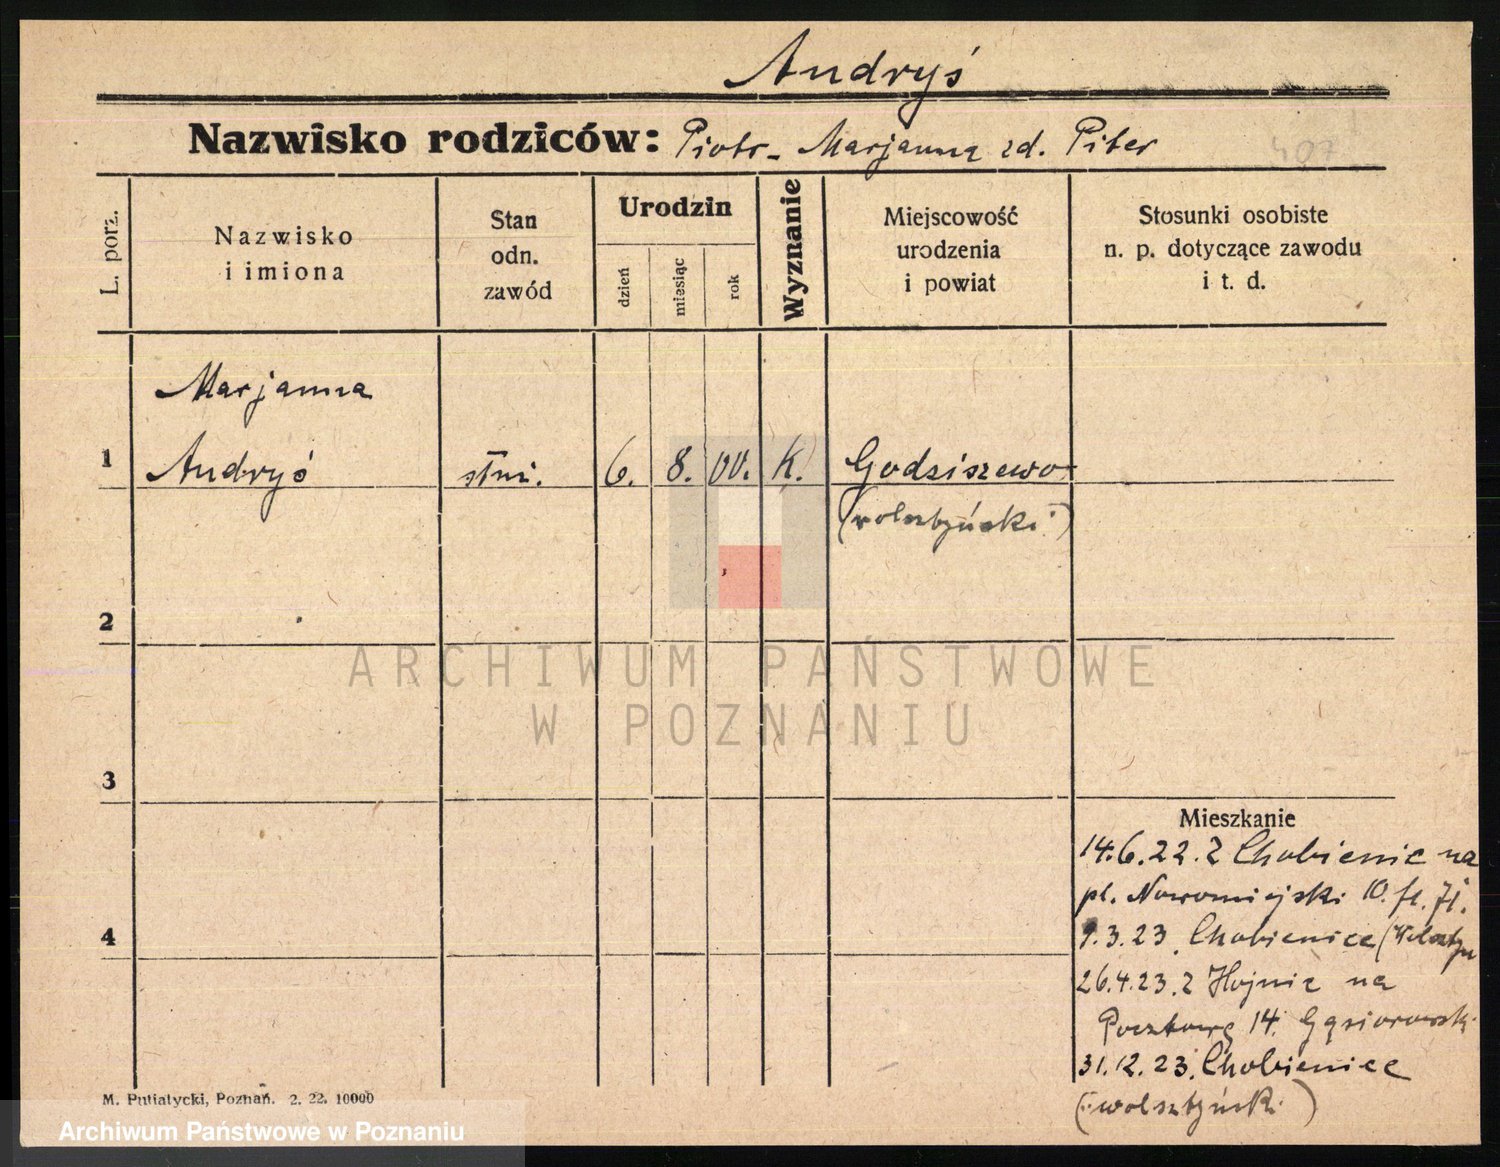 Andryś
Nazwisko rodziców: Piotr - Marjanna zd. Piter
407
L. porz.
Nazwisko
i imiona
Stan
odn.
zawód
Urodzin
dzień
miesiąc
rok
Wyznanie
Miejscowość
urodzenia
i powiat
Stosunki osobiste
n. p. dotyczące zawodu
i t. d.
Marjanna
1 Andryś służ. 6. 8. 00. K. Godziszewo
(wolsztyński)
2
3
4
Mieszkanie
14.6.22. z Chobienic na
pl. Nowomiejski 10.
1.3.23. Chobienice (Wolsztyn
26.4.23. z na
Pocztową 14. Gąsiorowski
31.12.23. Chobienice
(wolsztyński)
M. Putiatycki, Poznań. 2. 22. 10000
ARCHIWUM PAŃSTWOWE
W POZNANIU
Archiwum Państwowe w Poznaniu